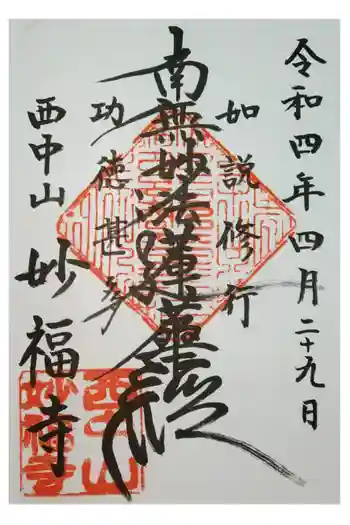 令和四年四月二十九日
如説修行
南無妙法蓮華経
功徳甚多
西中山
妙福寺
西中山
妙福寺